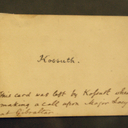 Kossuth.
This card was left by Kossuth when
making a call upon Major
at Gibraltar.